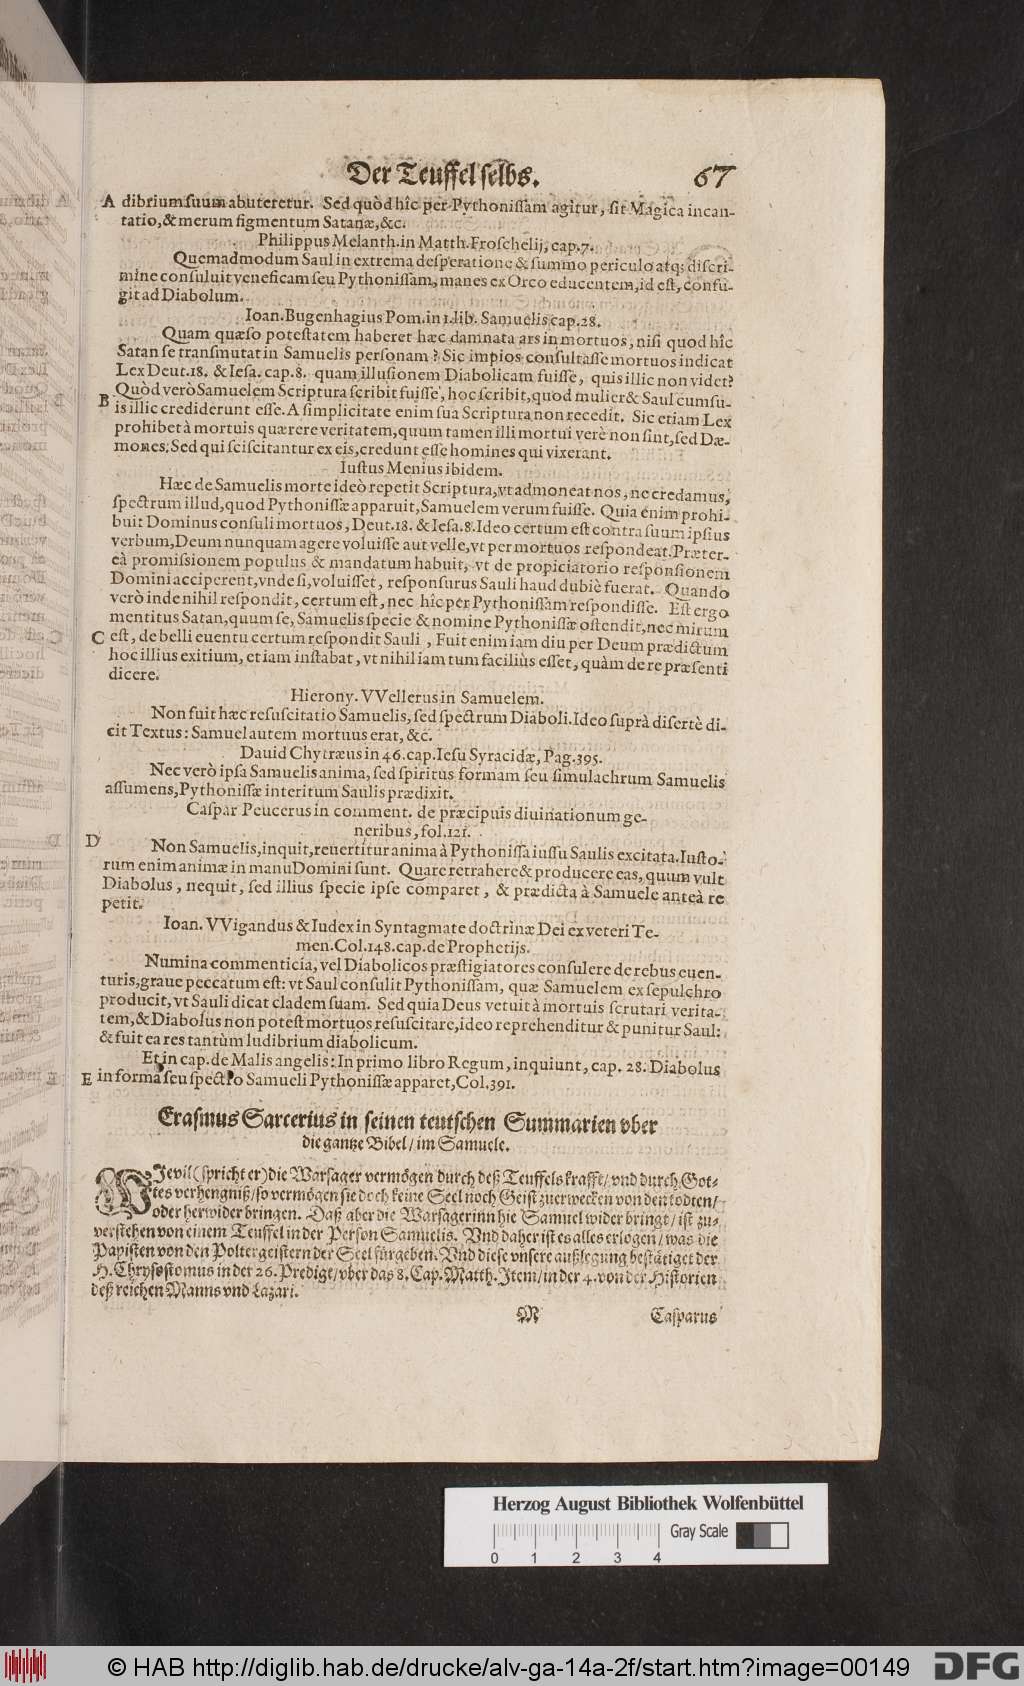 Der Teuffel selbs. 67
A dibrium suum abuteretur. Sed quòd hîc per Pythonissam agitur, sit Magica incan-
tatio, & merum figmentum Satanæ, &c.
Philippus Melanth. in Matth. Froschelij, cap. 7.
Quemadmodum Saul in extrema desperatione & summo periculo atq; discri-
mine consuluit veneficam seu Pythonissam, manes ex Orco educentem, id est, confu-
git ad Diabolum.
Ioan. Bugenhagius Pom. in 1. lib. Samuelis cap. 28.
Quam quæso potestatem haberet hæc damnata ars in mortuos, nisi quod hîc
Satan se transmutat in Samuelis personam? Sic impios consultasse mortuos indicat
Lex Deut. 18. & Iesa. cap. 8. quam illusionem Diabolicam fuisse, quis illic non videt?
Quòd verò Samuelem Scriptura scribit fuisse, hoc scribit, quod mulier & Saul cum su-
B is illic crediderunt esse. A simplicitate enim sua Scriptura non recedit. Sic etiam Lex
prohibet à mortuis quærere veritatem, quum tamen illi mortui verè non sint, sed Dæ-
mones. Sed qui sciscitantur ex eis, credunt esse homines qui vixerant.
Iustus Menius ibidem.
Hæc de Samuelis morte ideò repetit Scriptura, vt admoneat nos, ne credamus,
spectrum illud, quod Pythonissæ apparuit, Samuelem verum fuisse. Quia enim prohi-
buit Dominus consuli mortuos, Deut. 18. & Iesa. 8. Ideo certum est contra suum ipsius
verbum, Deum nunquam agere voluisse aut velle, vt per mortuos respondeat. Præter-
eà promissionem populus & mandatum habuit, vt de propiciatorio responsionem
Domini acciperent, vnde si, voluisset, responsurus Sauli haud dubiè fuerat. Quando
verò inde nihil respondit, certum est, nec hîc per Pythonissam respondisse. Est ergo
mentitus Satan, quum se, Samuelis specie & nomine Pythonissæ ostendit, nec mirum
C est, de belli euentu certum respondit Sauli, Fuit enim iam diu per Deum prædictum
hoc illius exitium, etiam instabat, vt nihil iam tum facilius esset, quàm de re præsenti
dicere.
Hierony. VVellerus in Samuelem.
Non fuit hæc resuscitatio Samuelis, sed spectrum Diaboli. Ideo suprà disertè di-
cit Textus: Samuel autem mortuus erat, &c.
Dauid Chytræus in 46. cap. Iesu Syracidæ, Pag. 395.
Nec verò ipsa Samuelis anima, sed spiritus formam seu simulachrum Samuelis
assumens, Pythonissæ interitum Saulis prædixit.
Caspar Peucerus in comment. de præcipuis diuinationum ge-
neribus, fol. 121.
D Non Samuelis, inquit, reuertitur anima à Pythonissa iussu Saulis excitata. Iusto-
rum enim animæ in manu Domini sunt. Quare retrahere & producere eas, quum vult
Diabolus, nequit, sed illius specie ipse comparet, & prædicta à Samuele anteà re
petit.
Ioan. VVigandus & Iudex in Syntagmate doctrinæ Dei ex veteri Te-
men. Col. 148. cap. de Prophetijs.
Numina commenticia, vel Diabolicos præstigiatores consulere de rebus euen-
turis, graue peccatum est: vt Saul consulit Pythonissam, quæ Samuelem ex sepulchro
producit, vt Sauli dicat cladem suam. Sed quia Deus vetuit à mortuis scrutari verita-
tem, & Diabolus non potest mortuos resuscitare, ideo reprehenditur & punitur Saul:
& fuit ea res tantùm ludibrium diabolicum.
Et in cap. de Malis angelis: In primo libro Regum, inquiunt, cap. 28. Diabolus
E in forma seu spectro Samueli Pythonissæ apparet, Col. 391.
Erasmus Sarcerius in seinen teutschen Summarien vber
die gantze Bibel / im Samuele.
WIewil (spricht er) die Warsager vermögen durch deß Teuffels krafft / vnd durch Got-
tes verhengniß / so vermögen sie doch keine Seel noch Geist zuerwecken von den todten /
oder herwider bringen. Daß aber die Warsagerinn hie Samuel wider bringt / ist zu-
verstehen von einem Teuffel in der Person Samuelis. Vnd daher ist es alles erlogen / was die
Papisten von den Poltergeistern der Seel fürgeben. Vnd diese vnsere außlegung bestätiget der
H. Chrysostomus in der 26. Predigt / vber das 8. Cap. Matth. Item / in der 4. von der Historien
deß reichen Manns vnd Lazari.
M Casparus
Herzog August Bibliothek Wolfenbüttel
Gray Scale
0 1 2 3 4
© HAB http://diglib.hab.de/drucke/alv-ga-14a-2f/start.htm?image=00149 DFG